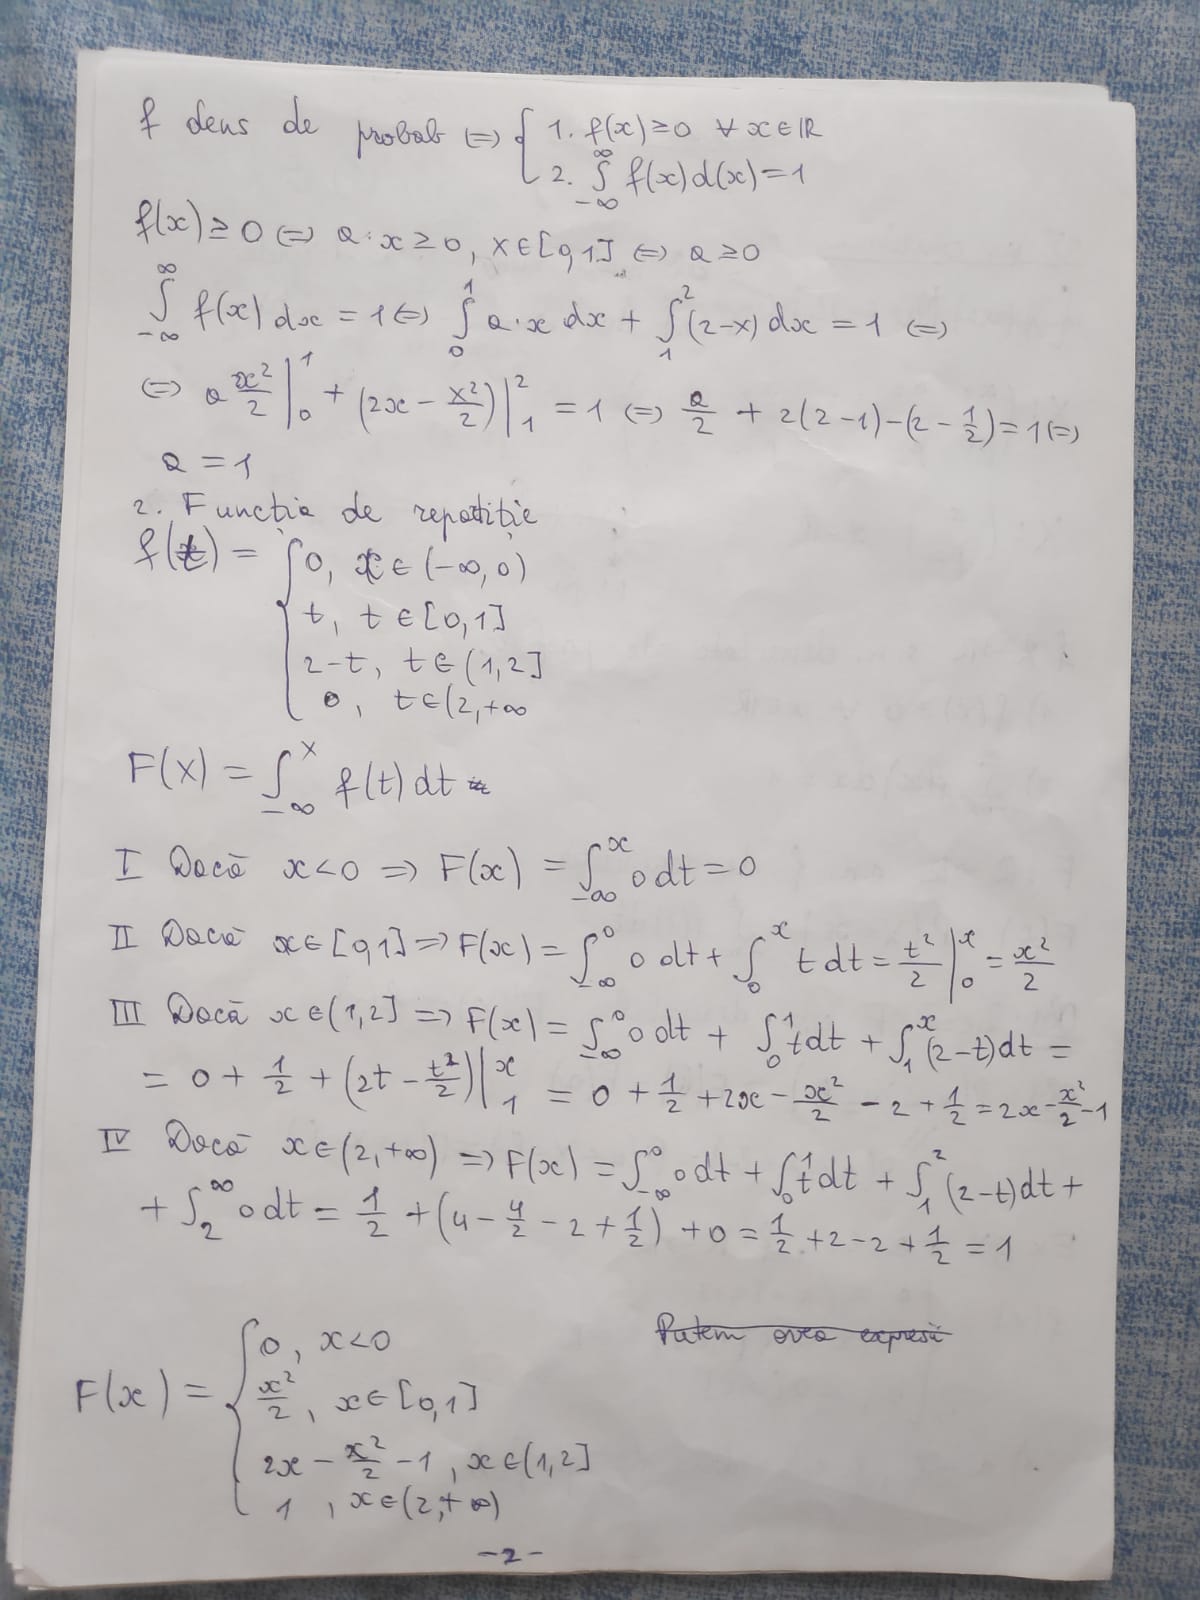 f dens de probab ⇔ { 1. f(x) ≥ 0 ∀ x ∈ ℝ
2. ∫_{-∞}^{∞} f(x) d(x) = 1
f(x) ≥ 0 ⇔ a·x ≥ 0, x ∈ [0,1] ⇔ a ≥ 0
∫_{-∞}^{∞} f(x) dx = 1 ⇔ ∫_0^1 a·x dx + ∫_1^2 (2-x) dx = 1 ⇔
⇔ a x²/2 |_0^1 + (2x - x²/2)|_1^2 = 1 ⇔ a/2 + 2(2-1)-(2-1/2) = 1 ⇔
a = 1
2. Funcția de repatiție
f(t) = { 0, t ∈ (-∞, 0)
t, t ∈ [0,1]
2-t, t ∈ (1,2]
0, t ∈ (2,+∞
F(x) = ∫_{-∞}^x f(t) dt
I Dacă x<0 ⇒ F(x) = ∫_{-∞}^x 0 dt = 0
II Dacă x ∈ [0,1] ⇒ F(x) = ∫_{-∞}^0 0 dt + ∫_0^x t dt = t²/2 |_0^x = x²/2
III Dacă x ∈ (1,2] ⇒ F(x) = ∫_{-∞}^0 0 dt + ∫_0^1 t dt + ∫_1^x (2-t) dt =
= 0 + 1/2 + (2t - t²/2)|_1^x = 0 + 1/2 + 2x - x²/2 - 2 + 1/2 = 2x - x²/2 - 1
IV Dacă x ∈ (2,+∞) ⇒ F(x) = ∫_{-∞}^0 0 dt + ∫_0^1 t dt + ∫_1^2 (2-t) dt +
+ ∫_2^∞ 0 dt = 1/2 + (4 - 4/2 - 2 + 1/2) + 0 = 1/2 + 2 - 2 + 1/2 = 1
Putem avea expresii
F(x) = { 0, x<0
x²/2, x ∈ [0,1]
2x - x²/2 - 1, x ∈ (1,2]
1, x ∈ (2,+∞)
-2-